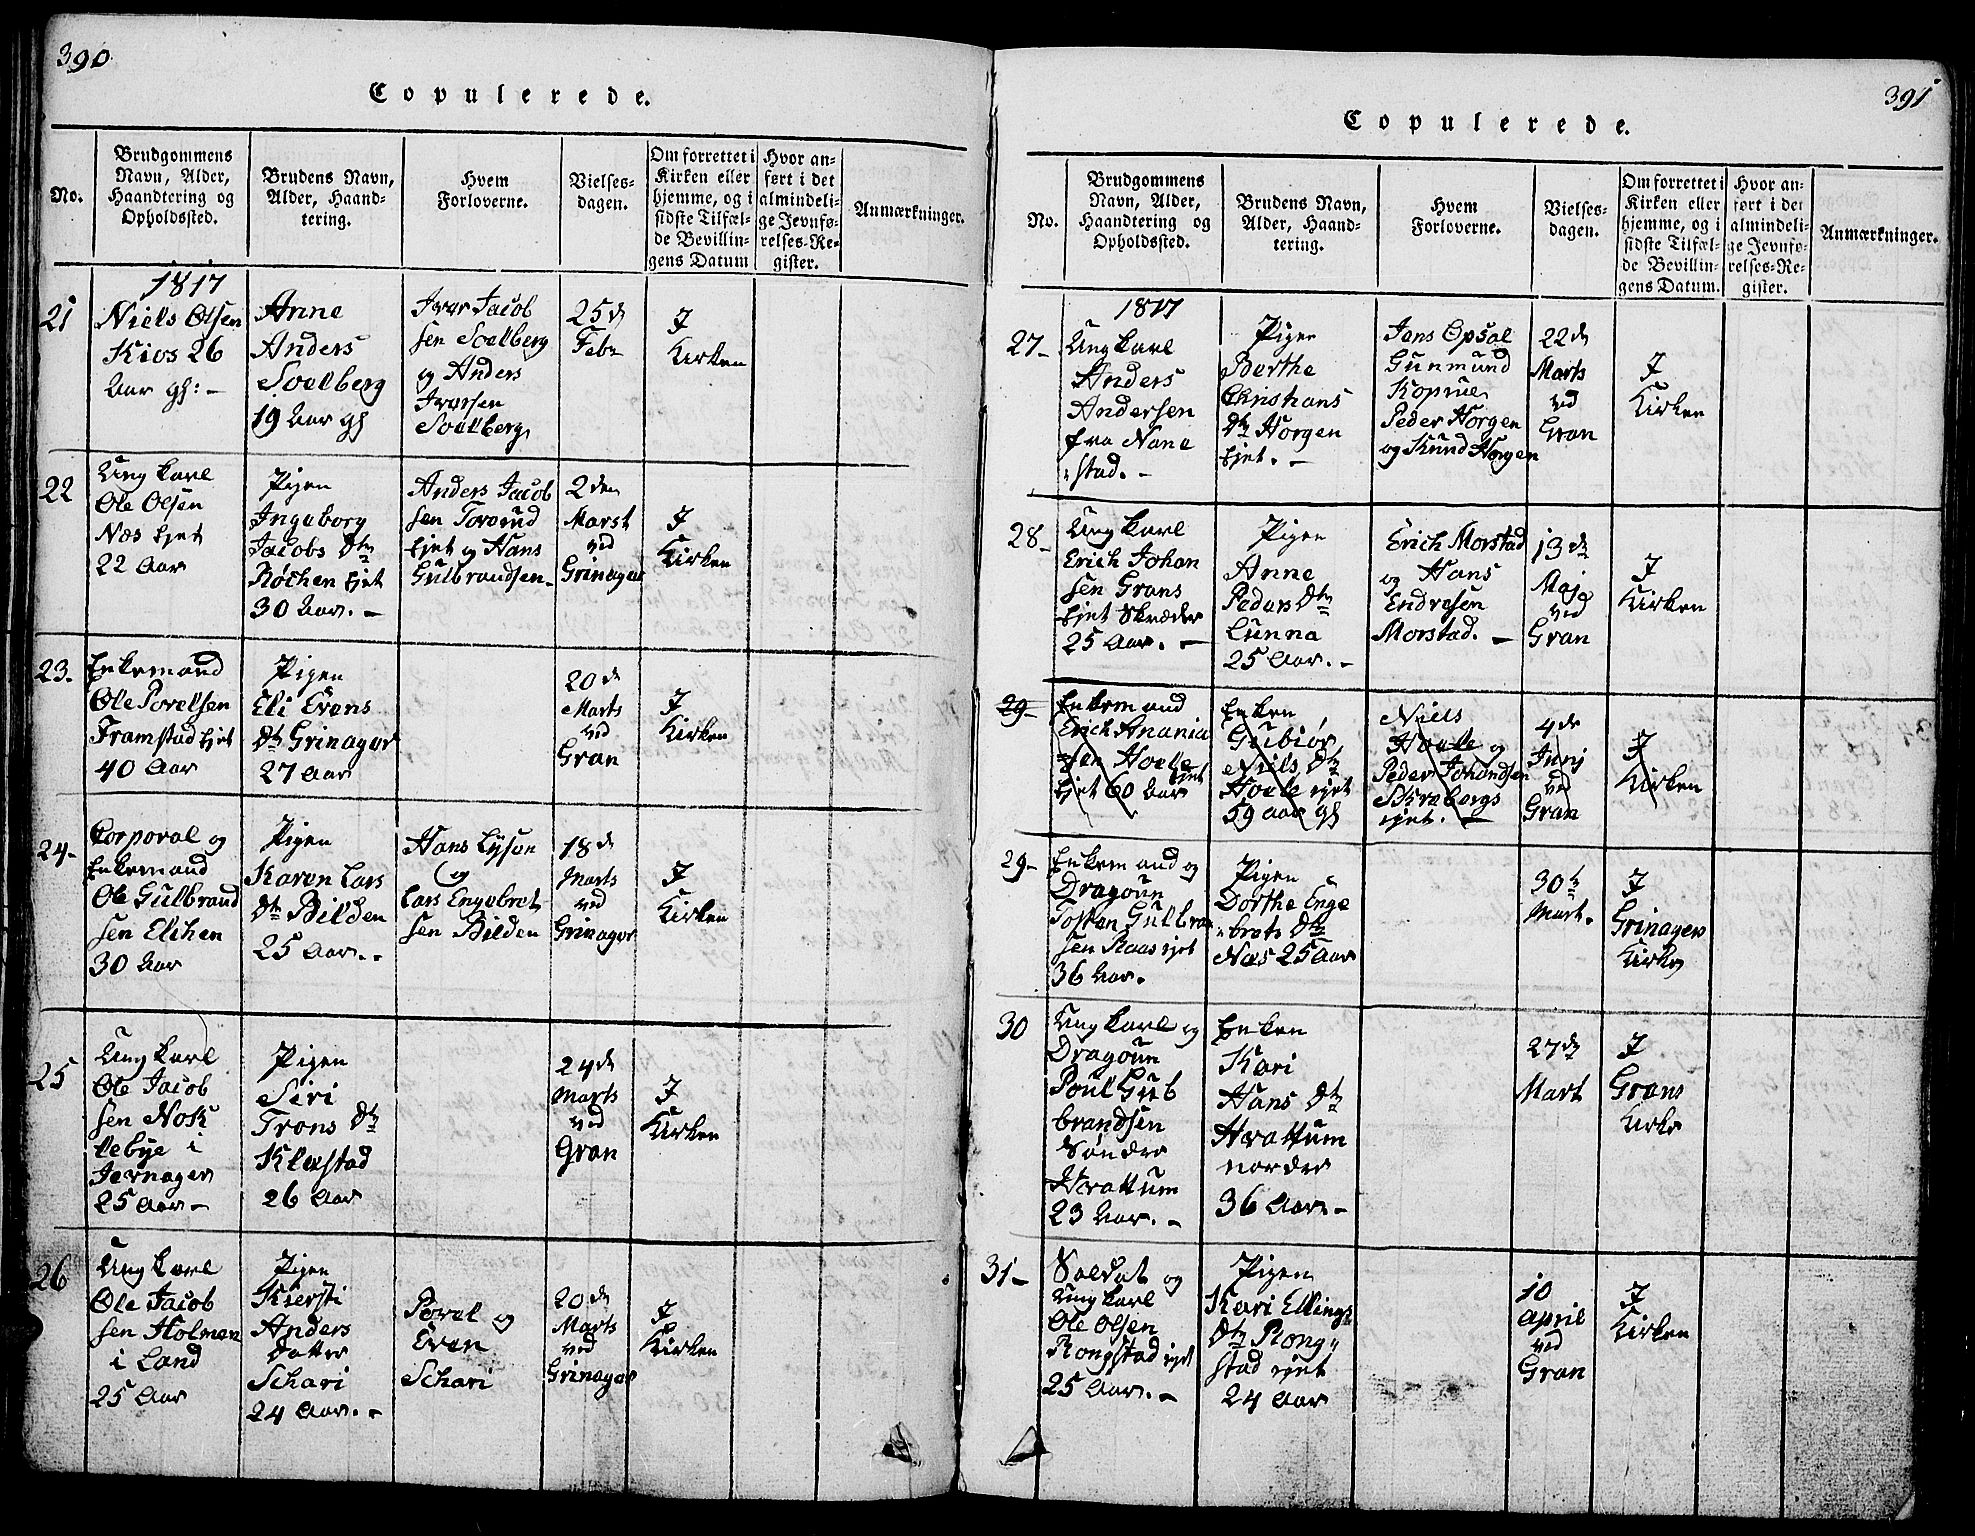 390
Copulerede.
No.
Brudgommens
Navn, Alder,
Haandtering og
Opholdssted.
Brudens Navn,
Alder, Haand-
tering.
Hvem
Forloverne.
Vielses-
dagen.
Om forrettet i
Kirken eller
hjemme, og i
sidste Tilfæl-
de Bevillin-
gens Datum
Hvor an-
ført i det
almindeli-
ge Jevnfø-
relses-Re-
gister.
Anmærkninger.
1817
21
Niels Olsen
Kios 26
Aar gl: -
Anne
Anders
Soelberg
19 Aar gl
Iver Jacob
sen Soelberg
og Anders
Iversen
Soelberg
25 d
Febr
I
Kirken
22
Ung karl
Ole Olsen
Næs Ejet
22 Aar
Pigen
Ingeborg
Jacobs Dtr
Røchen Ejet
30 Aar. -
Anders Jacob
sen Torsrud
Ejet og Hans
Gulbrandsen
2 den
Marst
ved
Grinager
I
Kirken
23.
Enkemand
Ole Povelsen
Framstad Ejet
40 Aar
Pigen
Eli Evens
Dtr Grinager
27 Aar
20 d
Marts
ved
Gran
I
Kirken
24-
Corporal og
Enkemand
Ole Gulbrand
sen Elchen
30 Aar
Pigen
Karen Lars
Dtr Bilden
25 Aar.-
Hans Lysen
og
Lars Engebret
sen Bilden
18 d
Marts
ved
Grinager
I
Kirken
25
Ung karl
Ole Jacob
sen Nok
lebye i
Jevnager
25 Aar -
Pigen
Siri
Trons Dtr
Klæstad
26 Aar
24 d
Marts
ved
Gran
I
Kirken
26
Ung karl
Ole Jacob
sen Holmen
i Land
25 Aar
Pigen
Kiersti
Anders
Datter
Schari
24 Aar. -
Povel og
Even
Schari
20 d
Marts
ved
Grinager
I
Kirken
391
Copulerede.
No.
Brudgommens
Navn, Alder,
Haandtering og
Opholdssted.
Brudens Navn,
Alder, Haand-
tering.
Hvem
Forloverne.
Vielses-
dagen.
Om forrettet i
Kirken eller
hjemme, og i
sidste Tilfæl-
de Bevillin-
gens Datum.
Hvor an-
ført i det
almindeli-
ge Jevnfø-
relses-Re-
gister.
Anmærkninger.
1817
27-
Ung karl
Anders
Andersen
fra Nane
stad. -
Pigen
Berthe
Christians
Dtr Horgen
Ejet. -
Jens Opsal
Gunmund
Koprue
Peder Horgen
og Knud Horgen
22 d
Marts
ved
Gran
I
Kirken
28-
Ung karl
Erich Johan
sen Grans
Ejet Skræder
25 Aar. -
Pigen
Anne
Peders Dtr
Lunna
25 Aar. -
Erich Morstad
og Hans
Endresen
Morstad. -
13 d
Maj
ved
Gran
I
Kirken
29-
Enkemand
Erich Anania
sen Hoele
Ejet 60 Aar
Enken
Gubiør
Niels Dtr
Hoele ejet
59 aar gl
Niels
Hoele og
Peder Johandsen
Skrebergs
ejet. -
4 de
Junj
ved
Gran
I
Kirken
29-
Enkemand og
Dragoun
Tosten Gulbran
sen Raas ejet
36 Aar.
Pigen
Dorthe Enge
brets Dtr
Næs 25 Aar
30 te
Mart.
I
Grinagers
Kirke
30
Ung karl og
Dragoun
Poul Gub
brandsen
Søndre
Hvattum
23 Aar. -
Enken
Kari
Hans Dtr
Hvattum
nordre
36 Aar. -
27 de
Mart
I
Grans
Kirke
31-
Soldat og
Ung karl
Ole Olsen
Rongstad ejet
25 Aar. -
Pigen
Kari Ellings
Dtr Rong
stad ejet
24 Aar
10
April
ved
Gran
I
Kirken